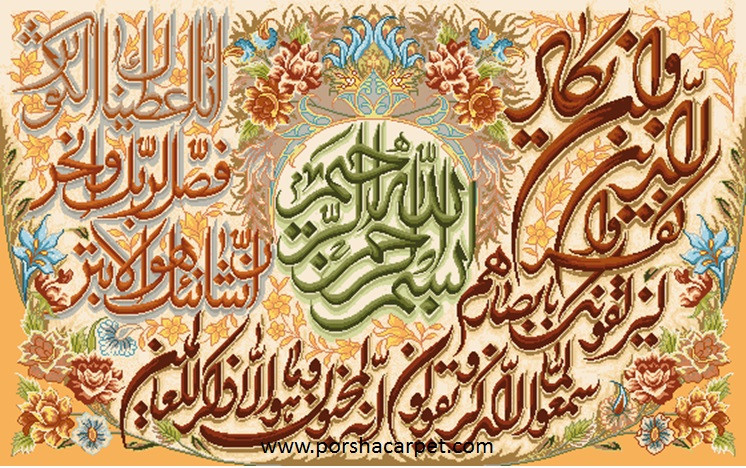 بسم الله الرحمن الرحیم
وان یکاد
الذین
کفروا
لیزلقونک بابصارهم
لما سمعوا الذکر ویقولون انه لمجنون وما هو الا ذکر للعالمین
انا اعطیناک الکوثر
فصل لربک وانحر
ان شانئک هو الابتر
www.porshacarpet.com